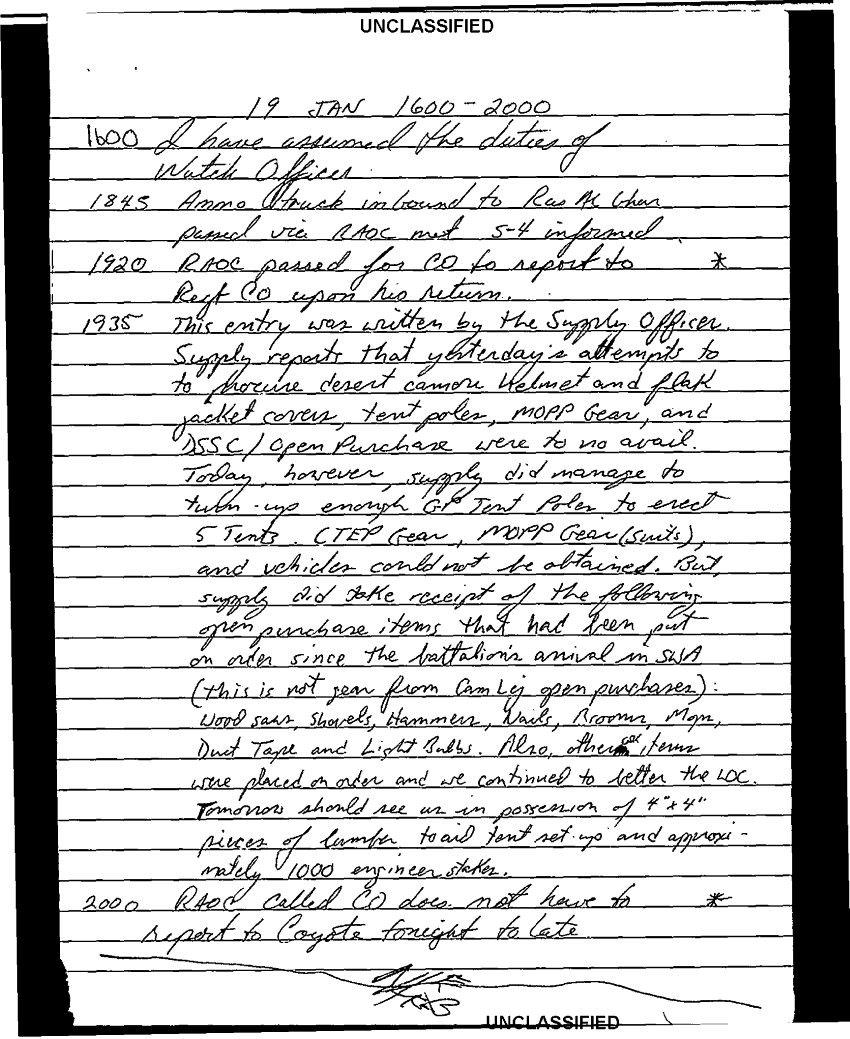 UNCLASSIFIED
19 JAN 1600-2000
1600 I have assumed the duties of
Watch Officer
1845 Ammo truck inbound to Ras Al Ghar
passed via RAOC S-4 informed
1920 RAOC passed for CO to report to *
Regt CO upon his return.
1935 This entry was written by the Supply Officer.
Supply reports that yesterday's attempts to
to procure desert camou Helmet and flak
jacket covers, tent poles, MOPP Gear, and
DSSC/Open Purchase were to no avail.
Today, however, supply did manage to
turn-up enough GP Tent Poles to erect
5 Tents. CTEP Gear, MOPP Gear (suits),
and vehicles could not be obtained. But,
supply did take receipt of the following
open purchase items that had been put
on order since the battalion's arrival in SWA
(this is not gear from Cam Lej open purchases):
Wood saws, Shovels, Hammers, Nails, Brooms, Mops,
Duct Tape and Light Bulbs. Also, other items
were placed on order and we continued to better the LOC.
Tomorrow should see us in possession of 4"x4"
pieces of lumber to aid tent set-up and approxi-
mately 1000 engineer stakes.
2000 RAOC called CO does not have to *
report to Coyote tonight to late
UNCLASSIFIED